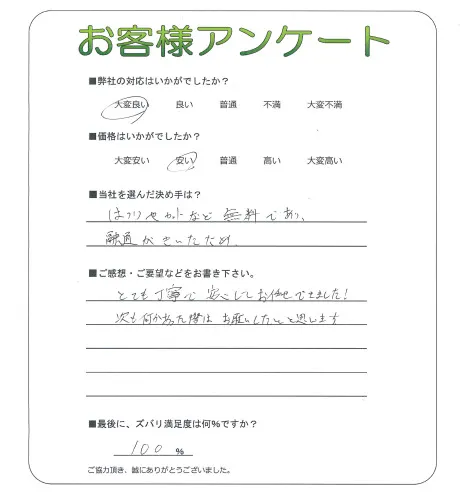 お客様アンケート
■弊社の対応はいかがでしたか？
大変良い 良い 普通 不満 大変不満
■価格はいかがでしたか？
大変安い 安い 普通 高い 大変高い
■当社を選んだ決め手は？
はつりやカットなど無料であり、
融通がきいたため。
■ご感想・ご要望などをお書き下さい。
とても丁寧で安心してお任せできました！
次も何かあった際はお願いしたいと思います
■最後に、ズバリ満足度は何%ですか？
100 %
ご協力頂き、誠にありがとうございました。